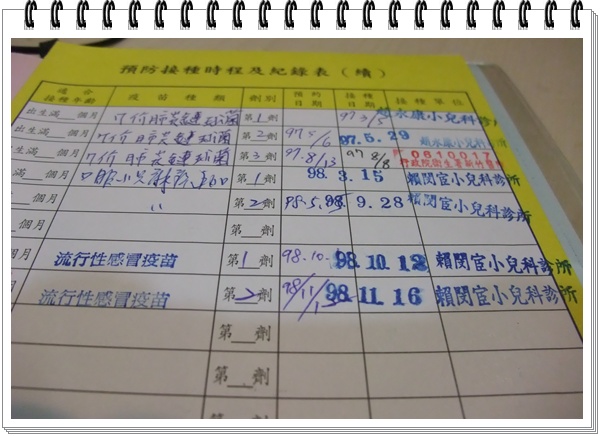 預防接種時程及紀錄表（續）
適合接種年齡 疫苗種類 劑別 預約日期 接種日期 接種單位
出生滿__個月 7價肺炎鏈球菌 第1劑 97 3/5 永康小兒科診
出生滿__個月 7價肺炎鏈球菌 第2劑 97.5/6 97.5.29 永康小兒科
生滿__個月 7價肺炎鏈球菌 第3劑 97.8/13 97 8/8 0610017
滿__個月 第1劑 98.3.15 賴閔宦小兒科診所
個月 〃 第2劑 98.5. 9.28 賴閔宦小兒科診所
個月 第__劑
個月 流行性感冒疫苗 第1劑 98.10. 98.10.12 賴閔宦小兒科診所
個月 流行性感冒疫苗 第2劑 98/11/ 98.11.16 賴閔宦小兒科診所
第__劑
第__劑
第